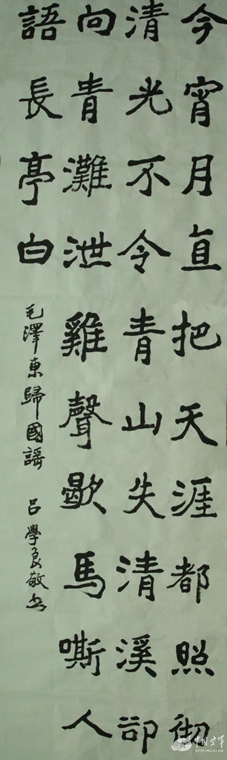 今宵月直把天涯都照彻
清光不令青山失清溪却
向青灘泄雞聲歇馬嘶人
語長亭白
毛澤東歸國謠 呂學良敬书